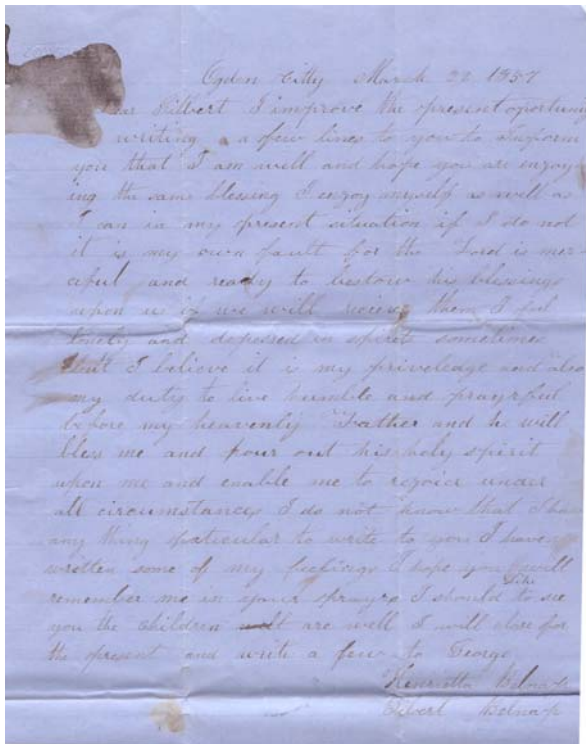 Ogden Citty March 22 1857
Gilbert I improve the present oportuny
writing a a few lines to you to inform
you that I am well and hope you are enjoy
ing the same blessing I enjoy myself as well as
I can in my present situation if I do not
it is my own fault for the Lord is mer
ciful and ready to bestow his blessings
upon us if we will recieve them I feel
lonely and depressed in spirit sometimes
but I believe it is my priveleage and also
my duty to live humble and prayrful
before my heavenly Father and he will
bless me and pour out his holy spirit
upon me and enable me to rejoice under
all circumstances I do not know that I ha
any thing paticular to write to you I have
written some of my feelings I hope you will
remember me in your prayrs I should like to see
you the children are well I will close for
the present and write a few to George
Henrietta Belnap
Gilbert Belnap